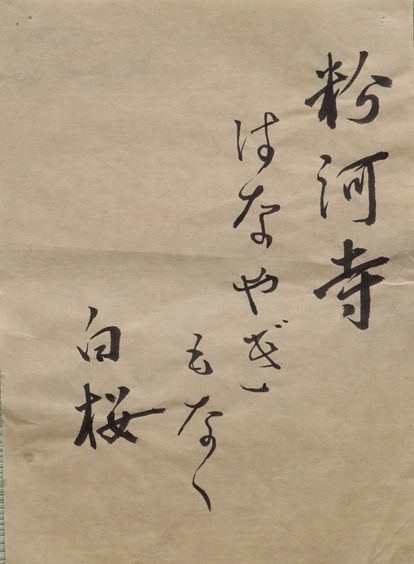 粉河寺
はなやぎ
もなく
白桜